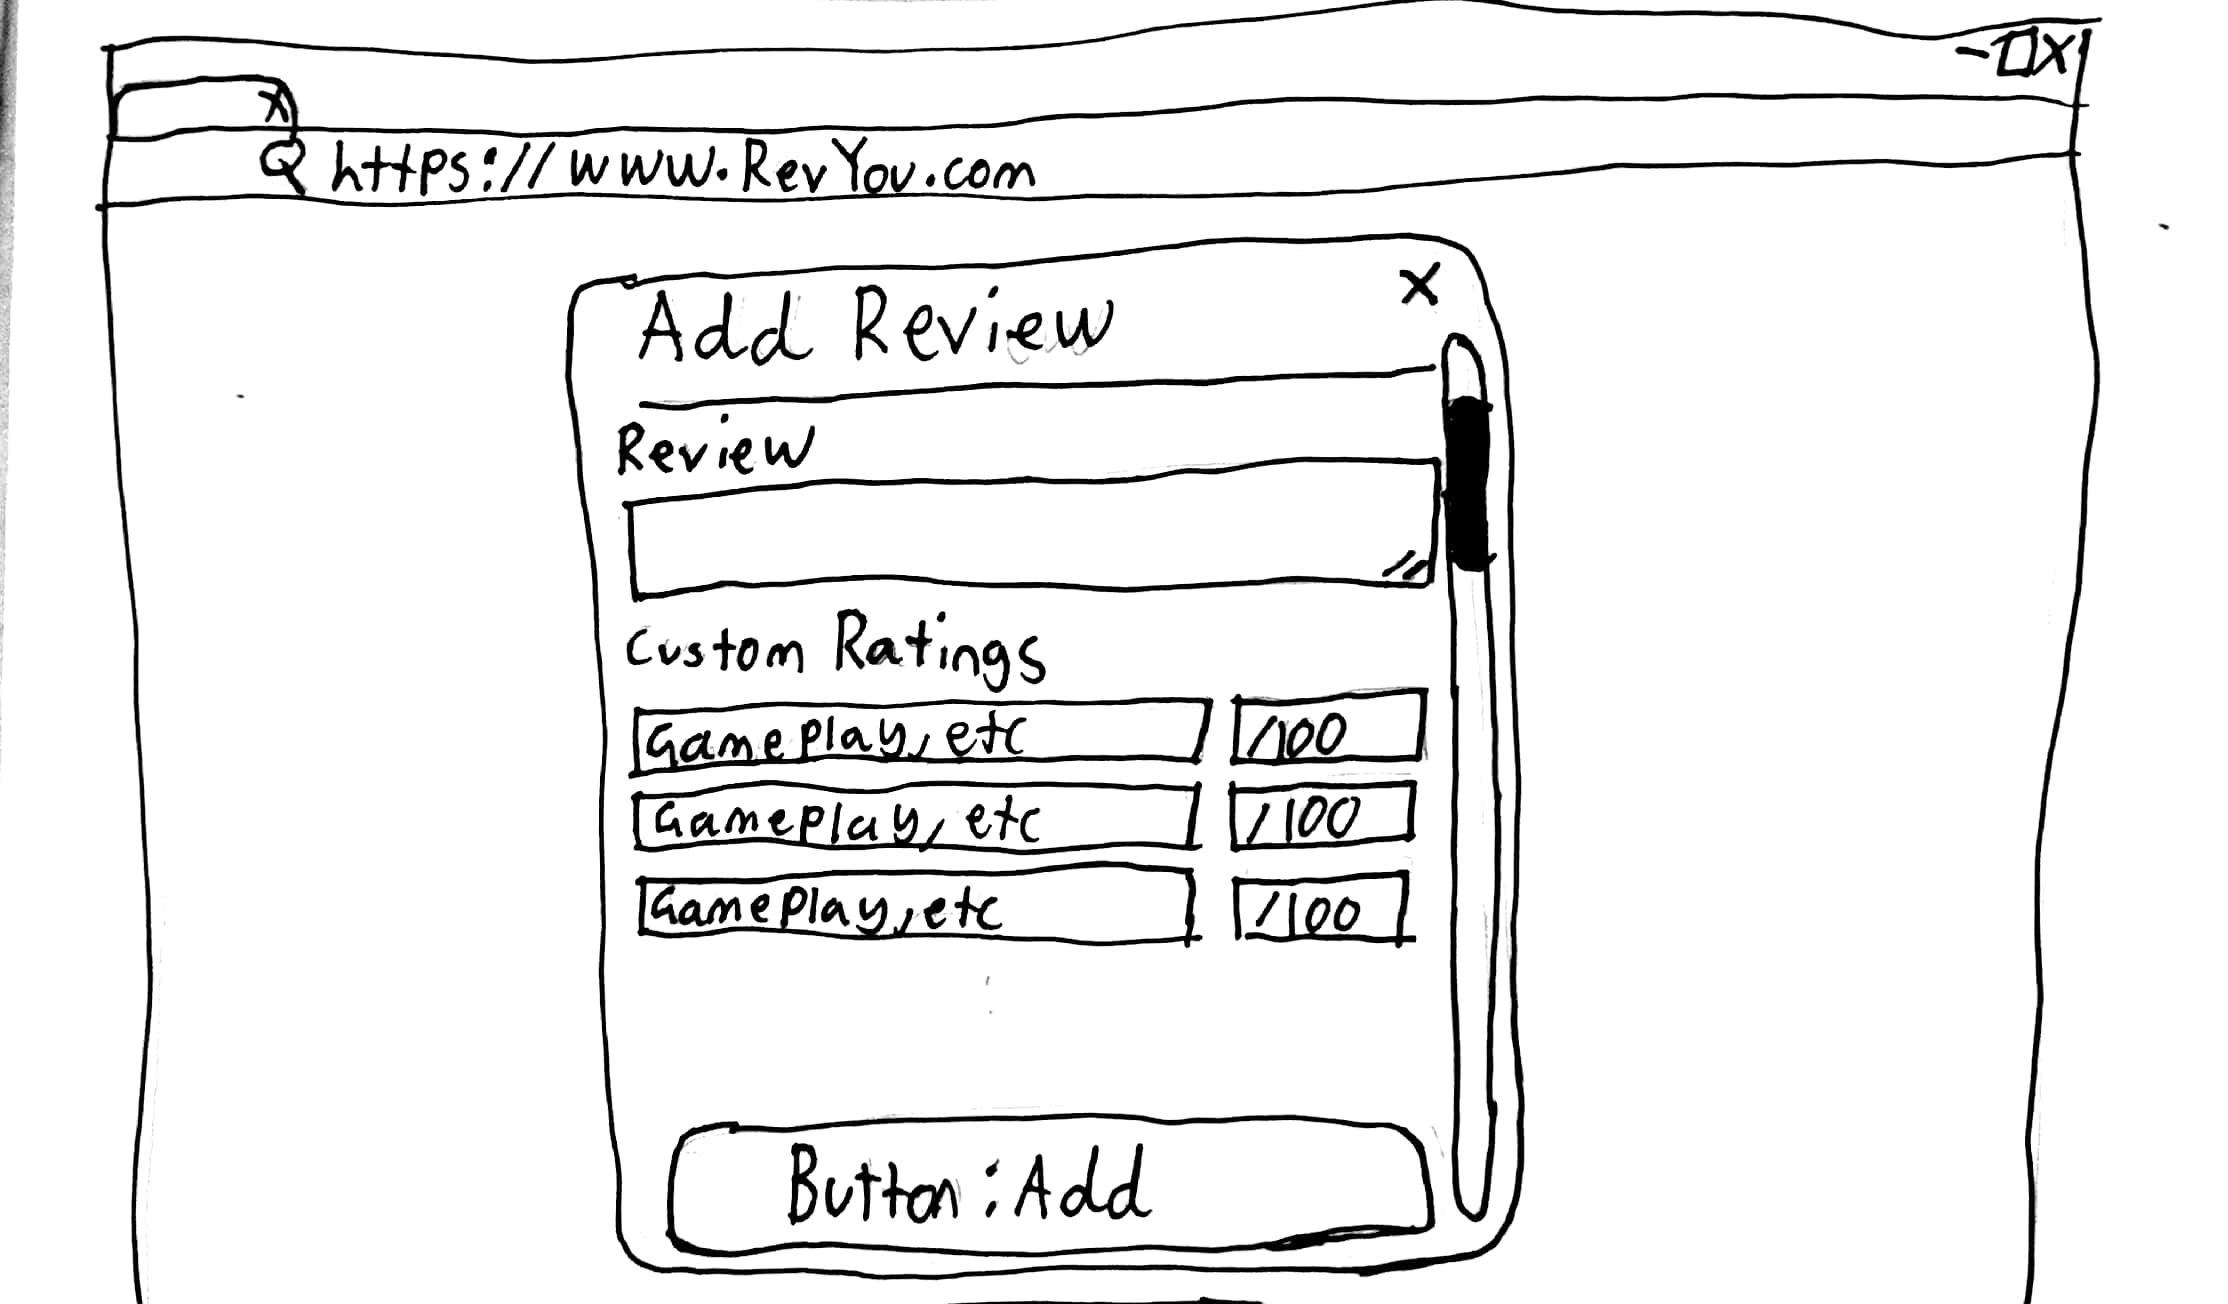 https://www.RevYou.com
Add Review
Review
Custom Ratings
Gameplay, etc /100
Gameplay, etc /100
Gameplay, etc /100
Button: Add